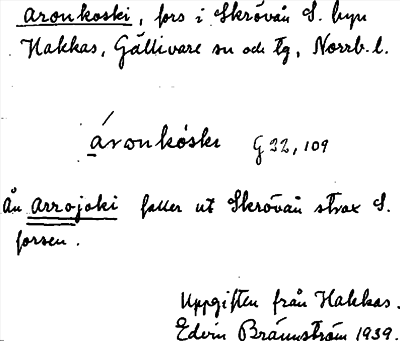 Aronkoski, fors i Skrövån S. byn
Hakkas, Gällivare sn och tg, Norrb. l.
áronkòski G 22, 109
Ån Arrojoki faller ut Skrövån strax S.
forsen.
Uppgiften från Hakkas.
Edvin Brännström 1939.